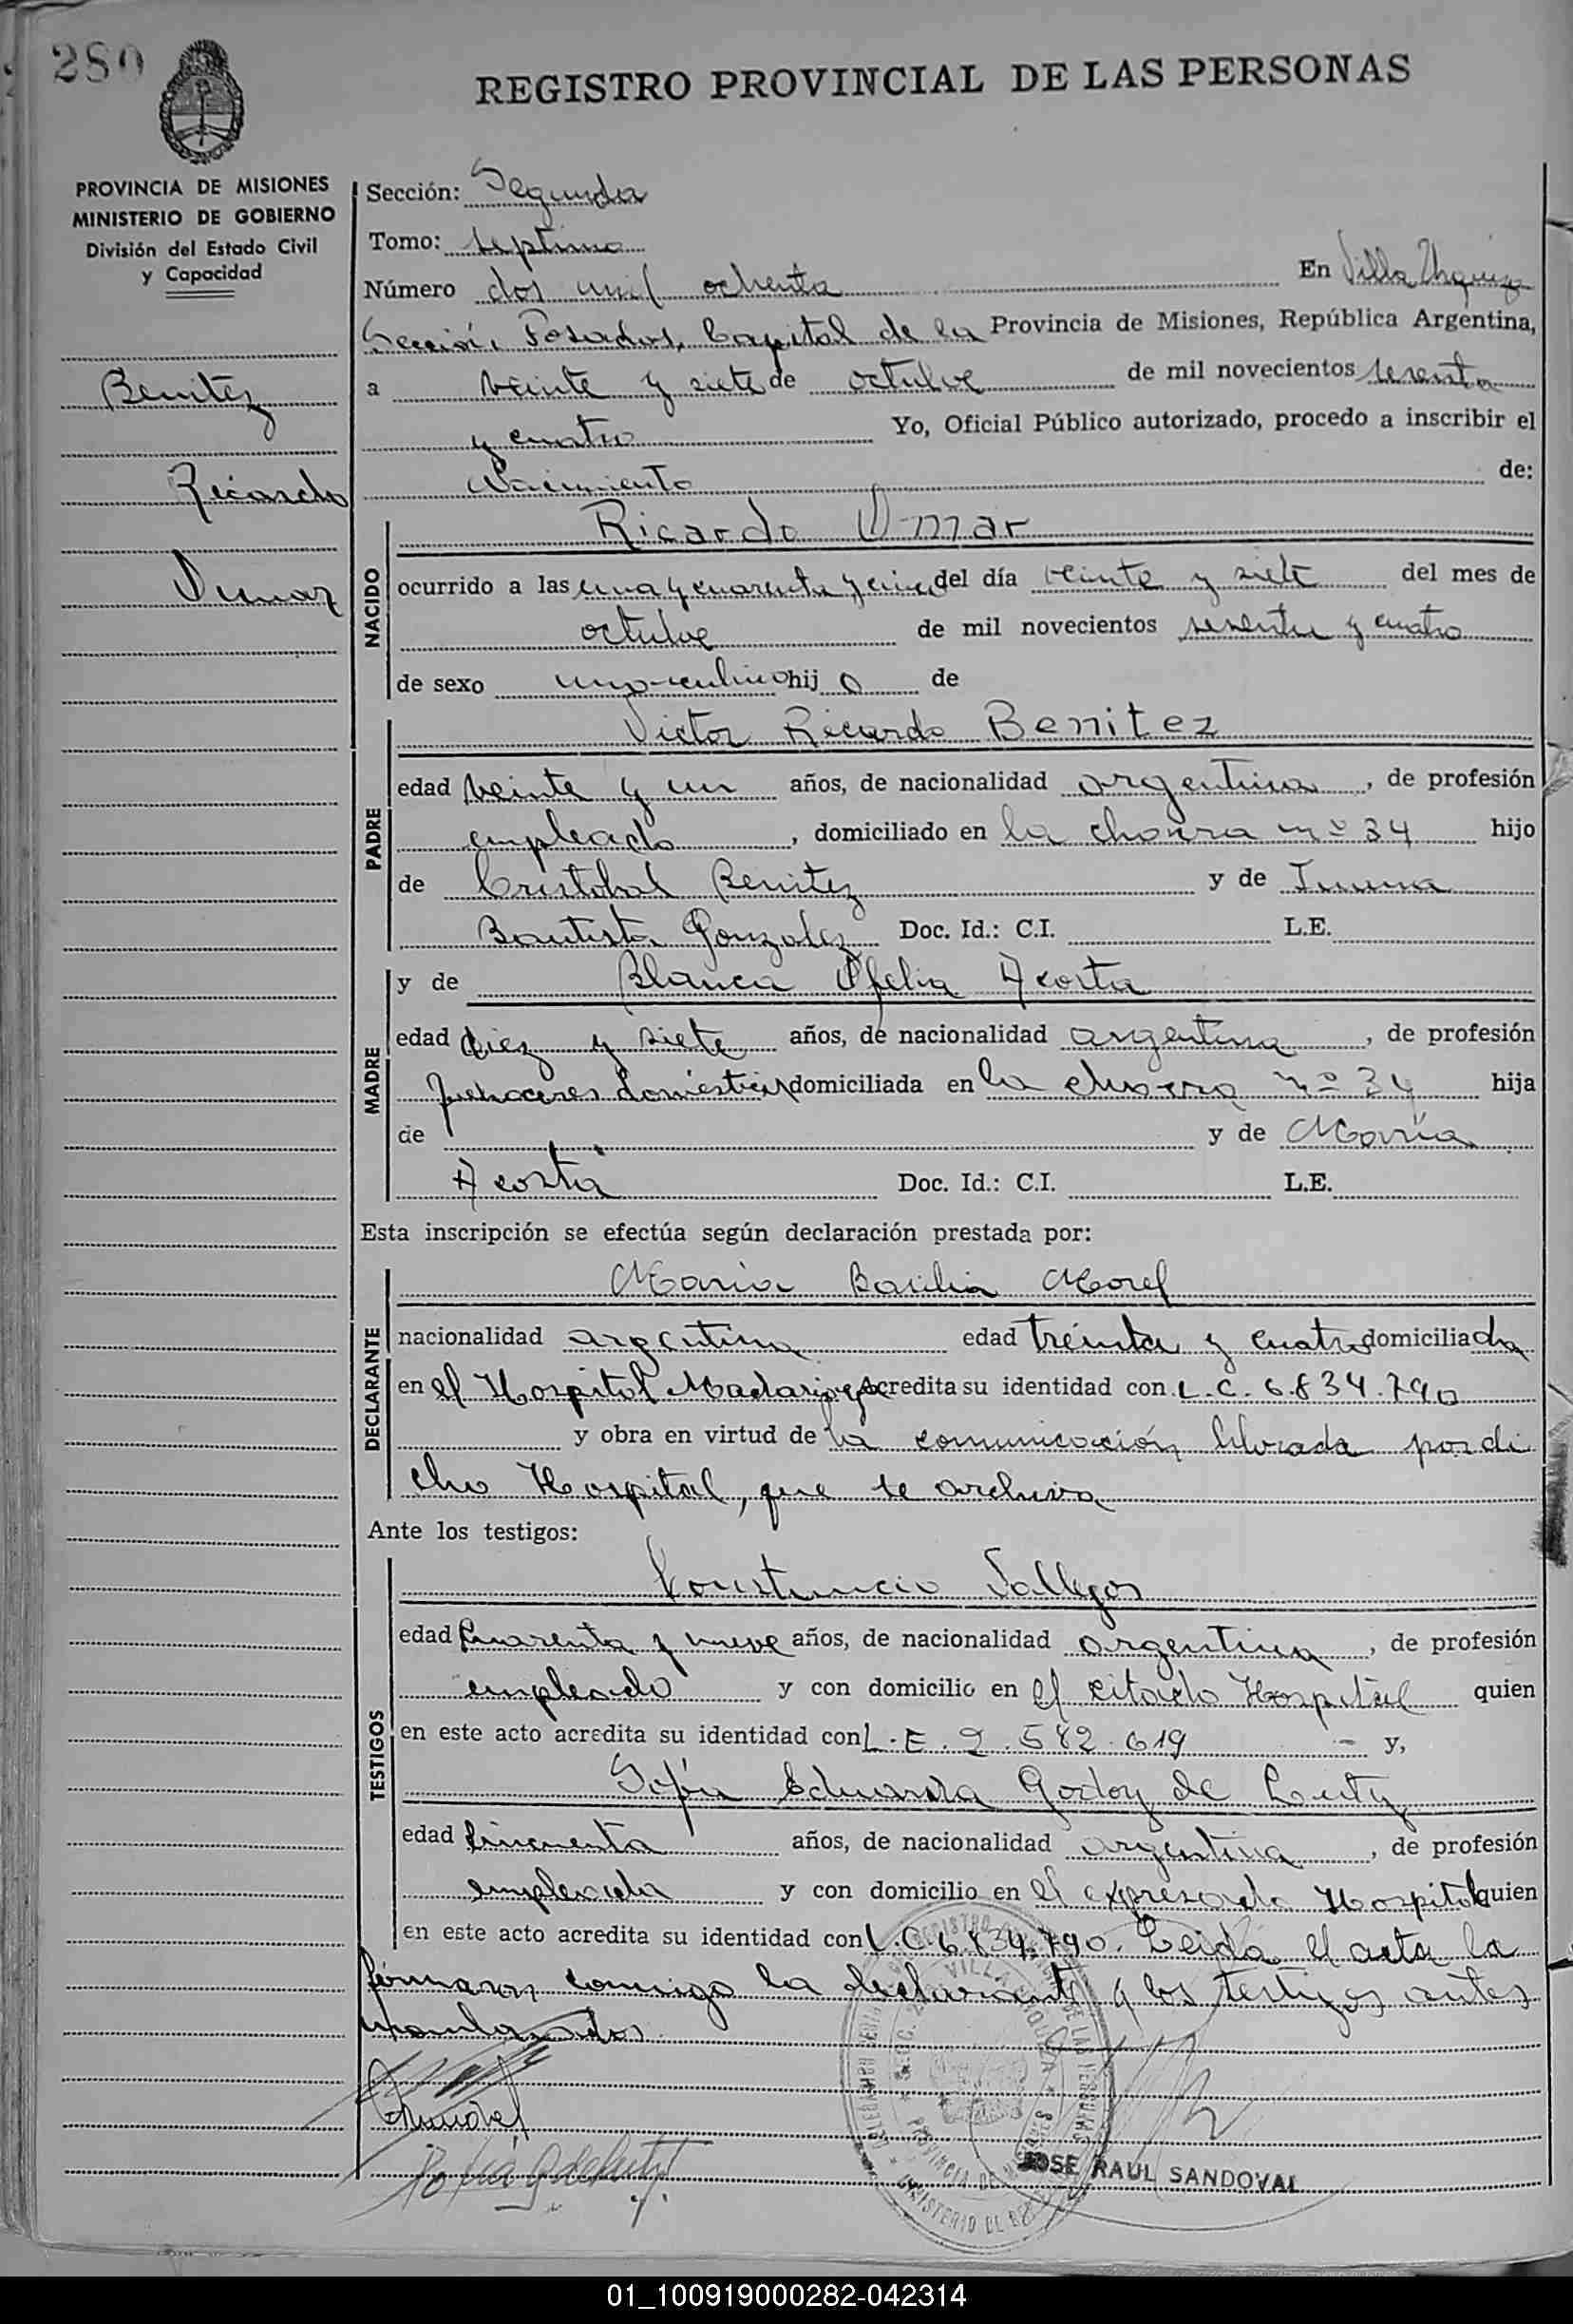 280
REGISTRO PROVINCIAL DE LAS PERSONAS
PROVINCIA DE MISIONES
MINISTERIO DE GOBIERNO
División del Estado Civil
y Capacidad
Benitez
Ricardo
Omar
Sección: Segunda
Tomo: septimo
Número dos mil ochenta En Villa Urquiza
Sección, Posadas, Capital de la Provincia de Misiones, República Argentina,
a veinte y siete de octubre de mil novecientos sesenta
y cuatro Yo, Oficial Público autorizado, procedo a inscribir el
Nacimiento de:
NACIDO
Ricardo Omar
ocurrido a las una y cuarenta y cinco del día veinte y siete del mes de
octubre de mil novecientos sesenta y cuatro
de sexo masculino hijo de
PADRE
Victor Ricardo Benitez
edad veinte y un años, de nacionalidad argentina, de profesión
empleado, domiciliado en la chacra nº 34 hijo
de Cristobal Benitez y de
Bautista Gonzalez Doc. Id.: C.I. L.E.
MADRE
y de Blanca Ofelia Acosta
edad diez y siete años, de nacionalidad argentina, de profesión
quehaceres domésticos domiciliada en la chacra nº 34 hija
de y de María
Acosta Doc. Id.: C.I. L.E.
Esta inscripción se efectúa según declaración prestada por:
DECLARANTE
María Basilia Morel
nacionalidad argentina edad treinta y cuatro domiciliada
en el Hospital Madariaga Acredita su identidad con L.C. 6.834.790
y obra en virtud de la comunicación librada por di
cho Hospital, que se archiva
Ante los testigos:
TESTIGOS
Constancio Vallejos
edad cuarenta y nueve años, de nacionalidad argentina, de profesión
empleado y con domicilio en el citado Hospital quien
en este acto acredita su identidad con L.E. 2.582.619 - y,
Sofía Eduarda Godoy de
edad cincuenta años, de nacionalidad argentina, de profesión
empleada y con domicilio en el expresado Hospital quien
en este acto acredita su identidad con L.C. 6.834.790. Leida el acta la
firmaron conmigo la declarante y los testigos antes
mencionados.
VILLA URQUIZA
PROVINCIA DE MISIONES
JOSE RAUL SANDOVAL
01_100919000282-042314